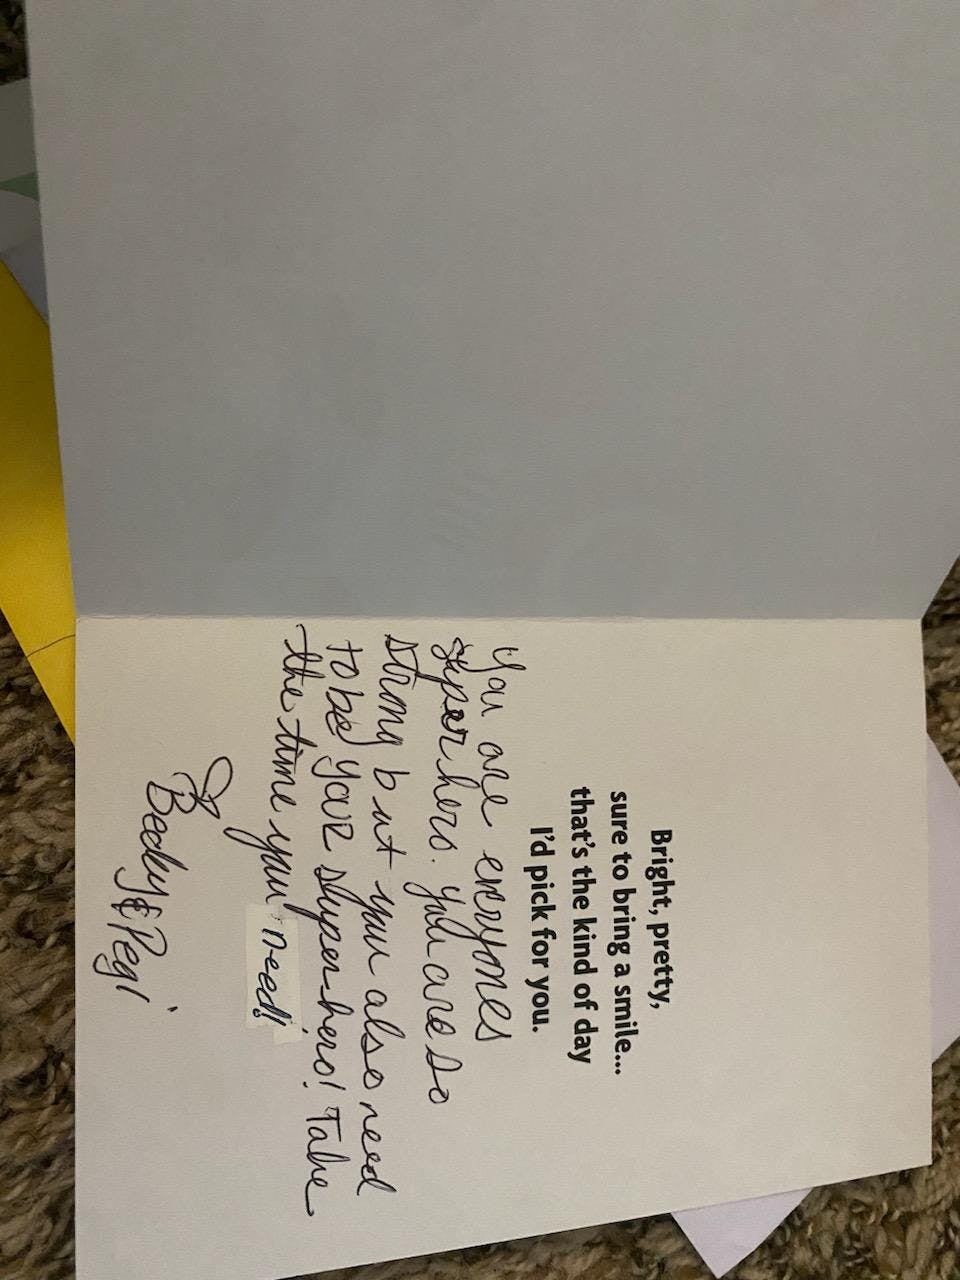 Bright, pretty,
sure to bring a smile...
that's the kind of day
I'd pick for you.
You are everyones
superhero. You are so
strong but you also need
to be YOUR superhero! Take
the time you need!
Becky & Pegi